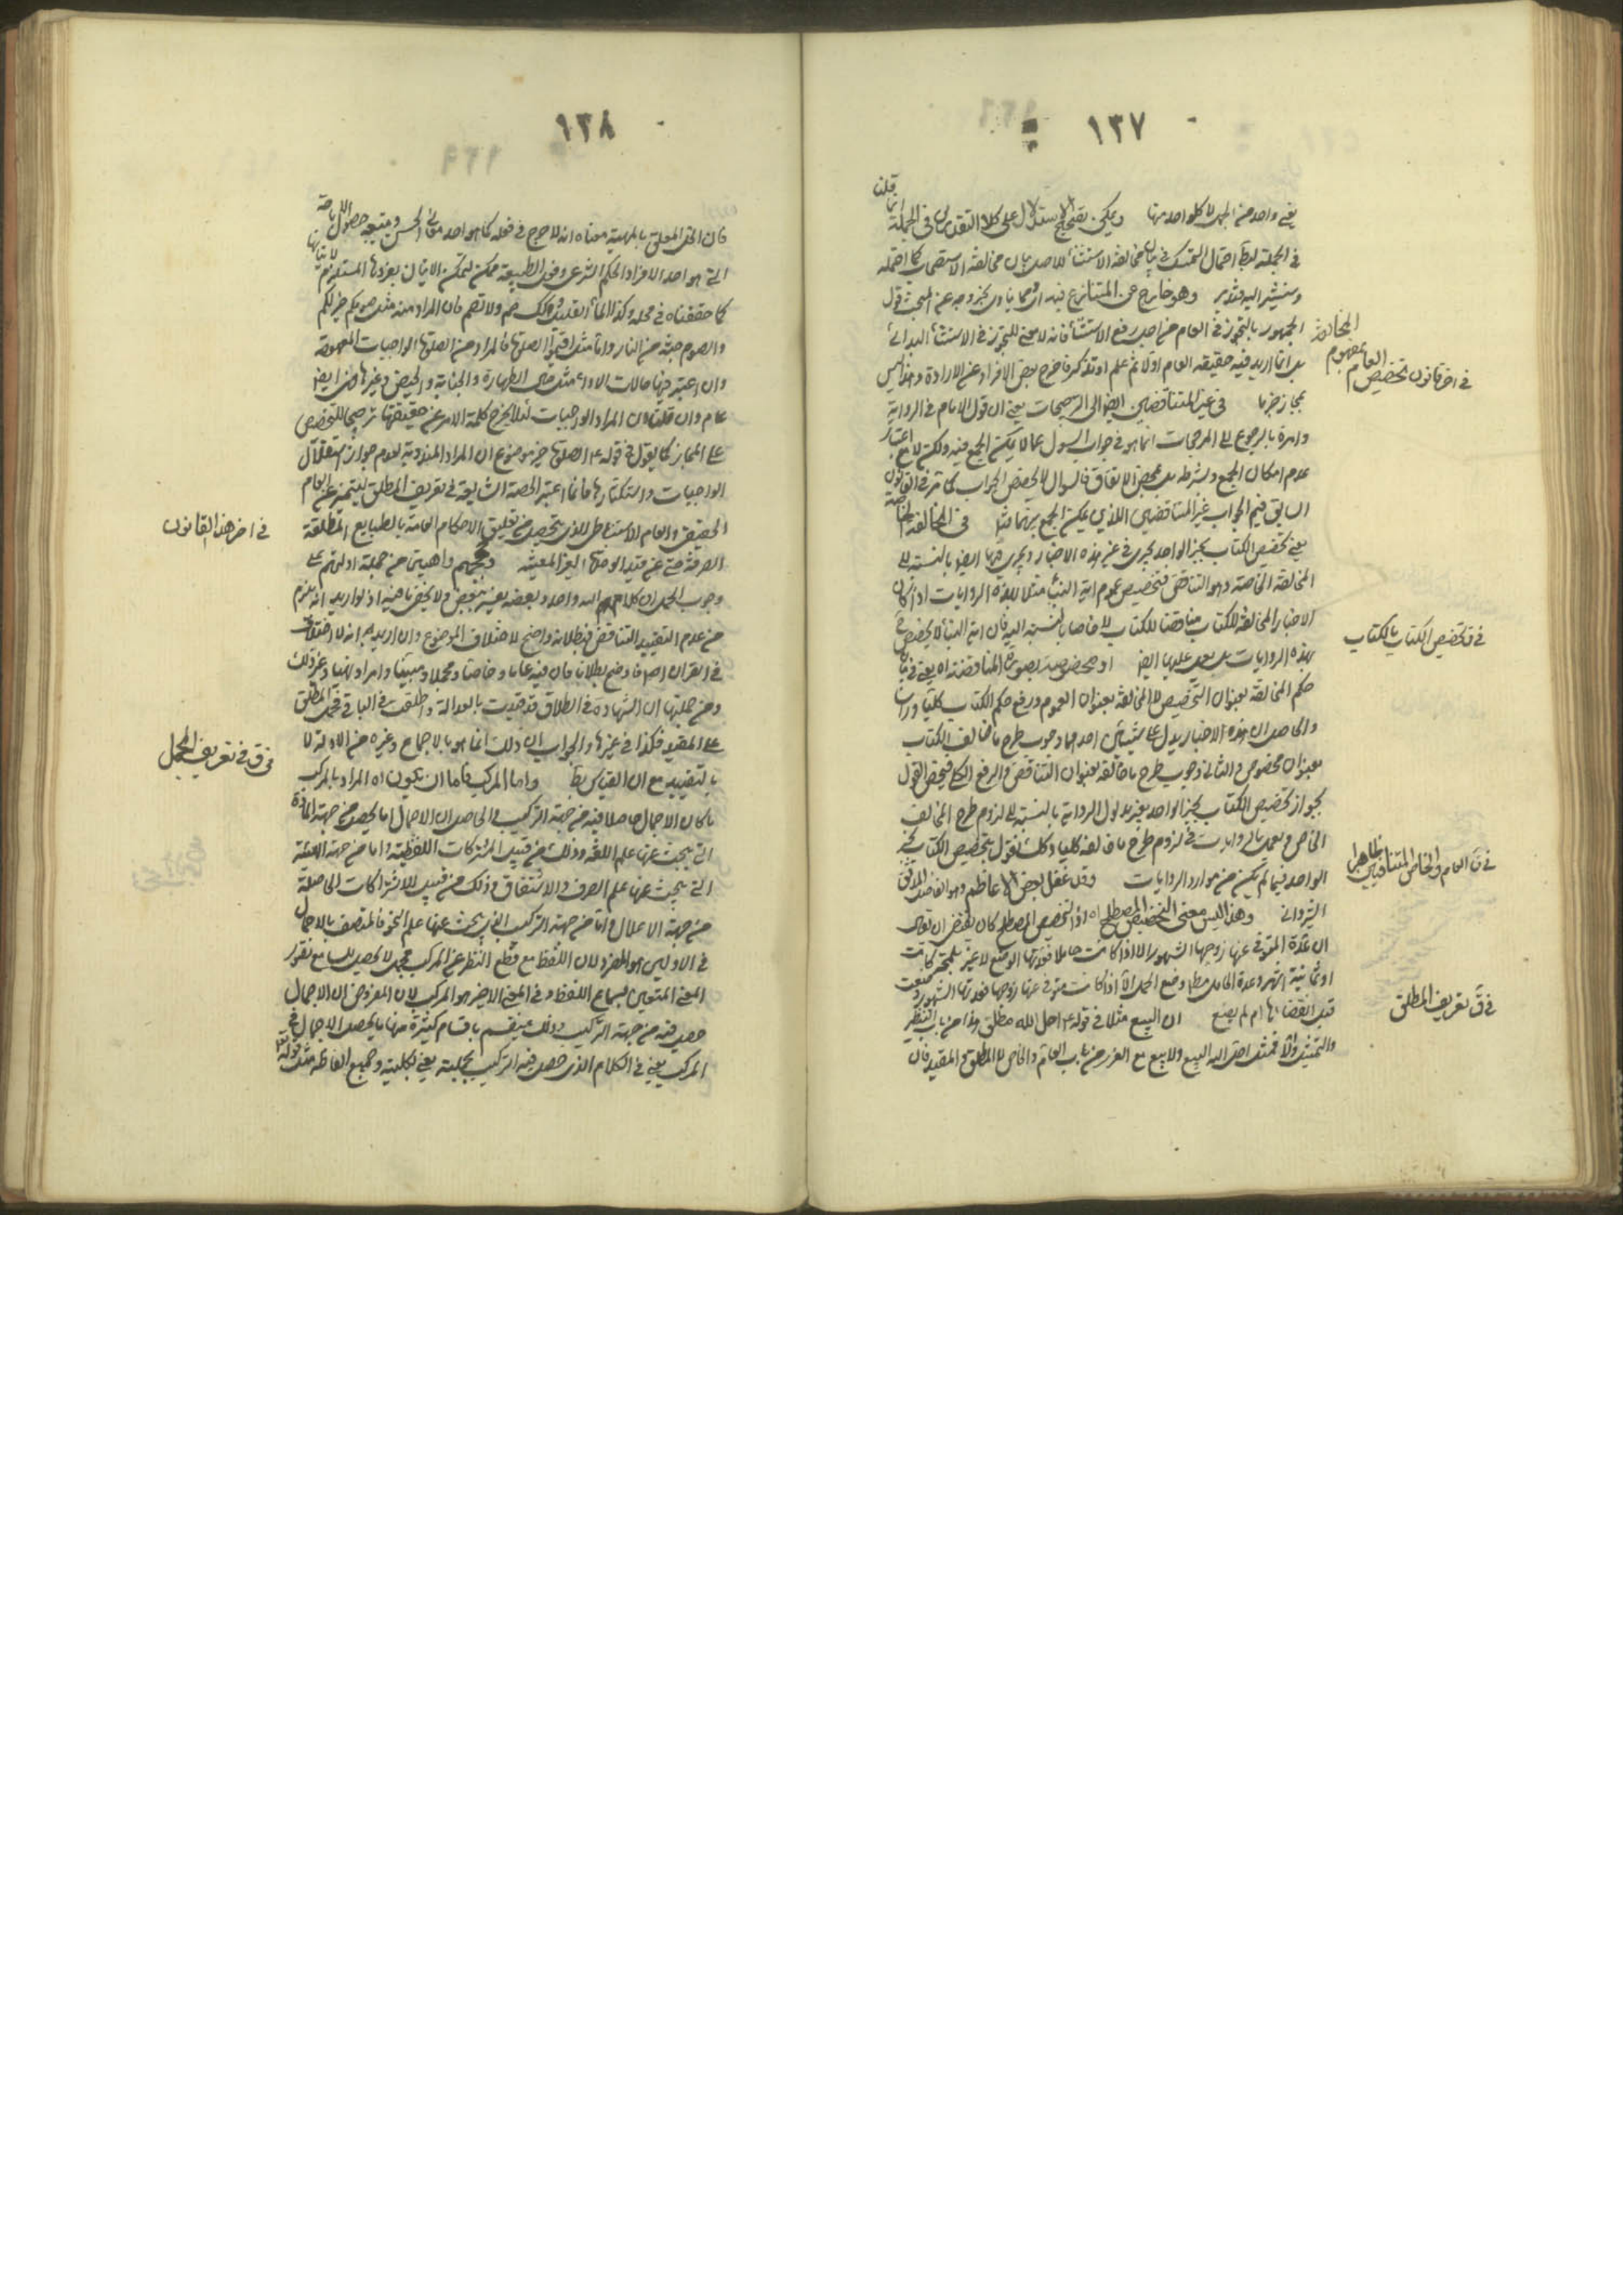 ١٣٧
قلنا
يعنى واحد من الجمل لا كلواحد منها ويمكن تصحيح الاستدلال على كلا التقديرين فى الجملة
فى الجملة احتمال التمسك فى بيان مخالفة الاستثناء للاصل بيان مخالفة الاستصحاب
وسنشير اليه فتدبر وهو خارج عن المتنازع فيه
الجمهور بالتجوز فى العام من اجل رفع الاستثناء فانه لا معنى للتجوز فى الاستثناء البدائى
بل انما اريد فيه حقيقة العام اولا ثم علم او تذكر فاخرج بعض الافراد عن الارادة وهذا ليس
بمجاز جزما فى غير المتناقضين ايضا الى الترجيحات يعنى ان قول الامام فى الرواية
وامره بالرجوع الى المرجحات انما هو فى جواب السؤال عما لا يمكن الجمع فيه ولكن لا مع اعتبار
عدم امكان الجمع وشرطه بل بمحض الاتفاق فالسؤال لا يخصص الجواب كما مر فى القانون
السابق فيعم الجواب غير المتناقضين اللذين يمكن الجمع بينهما فى المخالفة الخاصة
يعنى تخصيص الكتاب بخبر الواحد يجرى فى غير هذه الاخبار ويجرى فيها ايضا بالنسبة الى
المخالفة الخاصة وهو التناقض فتخصيص عموم اية النبأ مثلا بهذه الروايات اذا كان
الاخبار المخالفة للكتاب مناقضا للكتاب لا خاصا بالنسبة اليه فان اية النبأ لا يخصص
بهذه الروايات بل يعمل عليها ايضا او مخصوصة بصورة المناقضة اه يعنى فى بيان
حكم المخالفة بعنوان التخصيص لا المخالفة بعنوان العموم ورفع حكم الكتاب كليا
والحاصل ان هذه الاخبار يدل على شيئين احدهما وجوب طرح ما خالف الكتاب
بعنوان مخصوص والثانى وجوب طرح ما خالفه بعنوان التناقض والرفع الكلى فيخص القول
بجواز تخصيص الكتاب بخبر الواحد بغير مدلول الرواية بالنسبة الى لزوم طرح المخالف
الخاص ويعمل بالروايات فى لزوم طرح ما خالفه كليا وكك نقول بتخصيص الكتاب بخبر
الواحد فيما لم يكن من موارد الروايات وقد غفل بعض الاعاظم وهو الفاضل المدقق
الشروانى وهذا ليس معنى التخصيص المصطلح اه اذ التخصيص المصطلح كان يقتضى ان يقال
ان عدة المتوفى عنها زوجها الشهور الا اذا كانت حاملا فعدتها الوضع لا غير
وعدة الحامل مطلقا وضع الحمل الا اذا كانت متوفى عنها زوجها فعدتها الشهور
قبل انقضائها ام لم يضع ان البيع مثلا فى قوله تع احل الله مطلق هذا من باب التنظير
والتمثيل والا فمثل احل الله البيع ولا بيع مع الغرر من باب العام والخاص لا المطلق والمقيد فان
فى اخر قانون تخصيص العام بمفهوم المخالفة
فى ق تخصيص الكتاب بالكتاب
فى ق العام والخاص المتنافيين ظاهرا
فى ق تعريف المطلق
١٣٨
فان الحل المعلق بالمهية معناه انه لا حرج فى فعله كما هو احد معانى الحسن ويتبعه حصول الاباحة
التى هو احد الافراد الحكم الشرعى وفى الطبيعة ممكن لتمكن الاتيان بفردها المستلزم لاتيانها
كما حققناه فى محله وكذا الماء القليل وكك صم ولا تصم فان المراد منه مثل صومكم خير لكم
والصوم جنة من النار واما مثل اقيموا الصلوة فالمراد من الصلوة الواجبات المعهودة
وان اعتبر فيها حالات الاداء مثل حال الطهارة والجنابة والحيض وغيرها فهى ايضا
عام وان قلنا ان المراد الواجبات لئلا يخرج كلمة الامر عن حقيقتها ترجيحا للتخصيص
على المجاز كما يقول فى قوله ع الصلوة خير موضوع ان المراد المندوبة لعدم جواز استقلال
الواجبات واستكثارها فانما اعتبر الحصة الشايعة فى تعريف المطلق ليتميز عن العام
الحقيقى والعام الاستنباطى الذى يتحصل من تعليق الاحكام العامة بالطبايع المطلقة
الصرفة حتى عن قيد الوحدة الغير المعينة وحججهم واهيتى من جملة ادلتهم على
وجوب الحمل ان كلام الله واحد وبعضه يفسر ببعض ولا يخفى ما فيه اذ لو اريد انه يلزم
من عدم التقييد التناقض فبطلانه واضح لاختلاف الموضوع وان اريد به انه لا اختلاف
فى القران اصلا فاوضح بطلانا فان فيه عاما وخاصا ومجملا ومبينا وامرا ونهيا وغير ذلك
ومن جملتها ان الشهادة فى الطلاق قد قيدت بالعدالة واطلقت فى الباقى فحمل المطلق
على المقيد فكذا فى غيرها والجواب ان ذلك انما هو بالاجماع وغيره من الادلة لا
بالتقييد مع ان القياس بط واما المركب فاما ان يكون اه المراد بالمركب
ما كان الاجمال حاصلا فيه من جهة التركيب والحاصل ان الاجمال اما يحصل من جهة المادة
التى يبحث عنها علم اللغة وذلك من قبيل المشتركات اللفظية واما من جهة الهيئة
التى يبحث عنها علم الصرف والاشتقاق وذلك من قبيل الاشتراكات الحاصلة
من جهة الاعلال واما من جهة التركيب التى يبحث عنها علم النحو فالمتصف بالاجمال
فى الاولين هو المفرد لان اللفظ مع قطع النظر عن المركب مجمل لا يحصل للسامع تصور
المعنى المتعين بسماع اللفظ وفى المعنى الاخير هو المركب لان المفروض ان الاجمال
حصل فيه من جهة التركيب وذلك ينقسم باقسام كثيرة منها ما يحصل الاجمال فى
المركب يعنى فى الكلام الذى حصل فيه التركيب بجملته يعنى بكليته وجميع الفاظه مثل قوله تع
فى اخر هذا القانون
فى ق فى تعريف المجمل